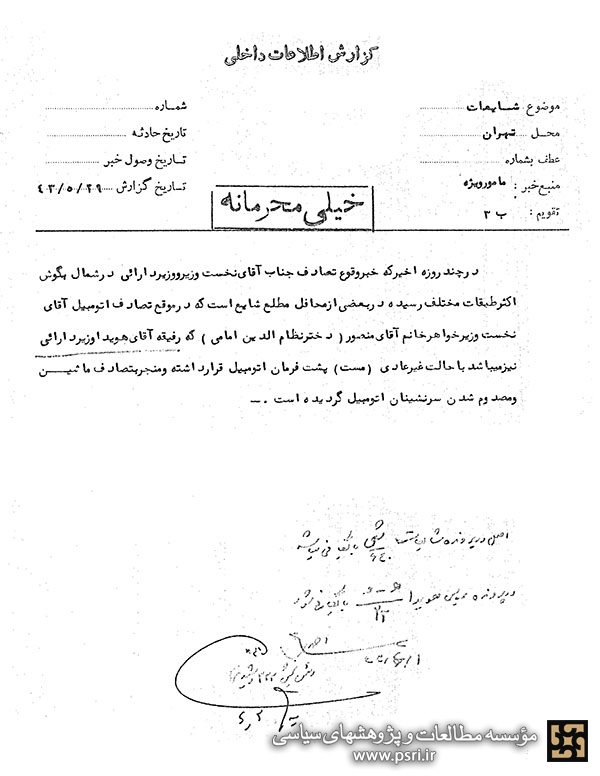 گزارش اطلاعات داخلی
موضوع شایعات
محل تهران
عطف بشماره
منبع خبر : مامور ویژه
تقویم : ب ۳
شماره
تاریخ حادثه
تاریخ وصول خبر
تاریخ گزارش ۴۳/۵/۲۹
خیلی محرمانه
در چند روزه اخیر که خبر وقوع تصادف جناب آقای نخست وزیر و وزیر دارائی در شمال بگوش
اکثر طبقات مختلف رسیده در بعضی از محافل مطلع شایع است که در موقع تصادف اتومبیل آقای
نخست وزیر خواهر خانم آقای منصور ( دختر نظام الدین امامی ) که رفیقه آقای هویدا وزیر دارائی
نیز میباشد با حالت غیر عادی (مست) پشت فرمان اتومبیل قرار داشته و منجر بتصادف ماشین
و مصدوم شدن سرنشینان اتومبیل گردیده است . ـ
اصل در پرونده شایعات بایگانی
در پرونده هویدا بایگانی شود
مؤسسه مطالعات و پژوهشهای سیاسی
www.psri.ir